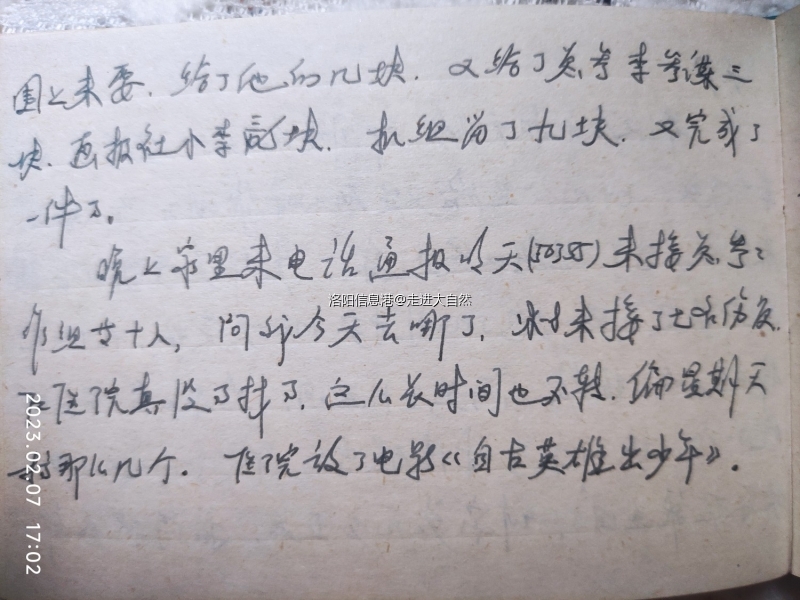 围上来要，给了他们几块，又给了总参李参谋三
块，画报社小李两块，机组留了九块，又完成了
一件事。
晚上家里来电话通报明天(50385)来接总参工
作组等十人，问我今天去哪了，来接了七名伤员，
医院真没事找事，这么长时间也不转，偏星期天
转那么几个。医院放了电影《自古英雄出少年》。
洛阳信息港@走进大自然
2023.02.07 17:02